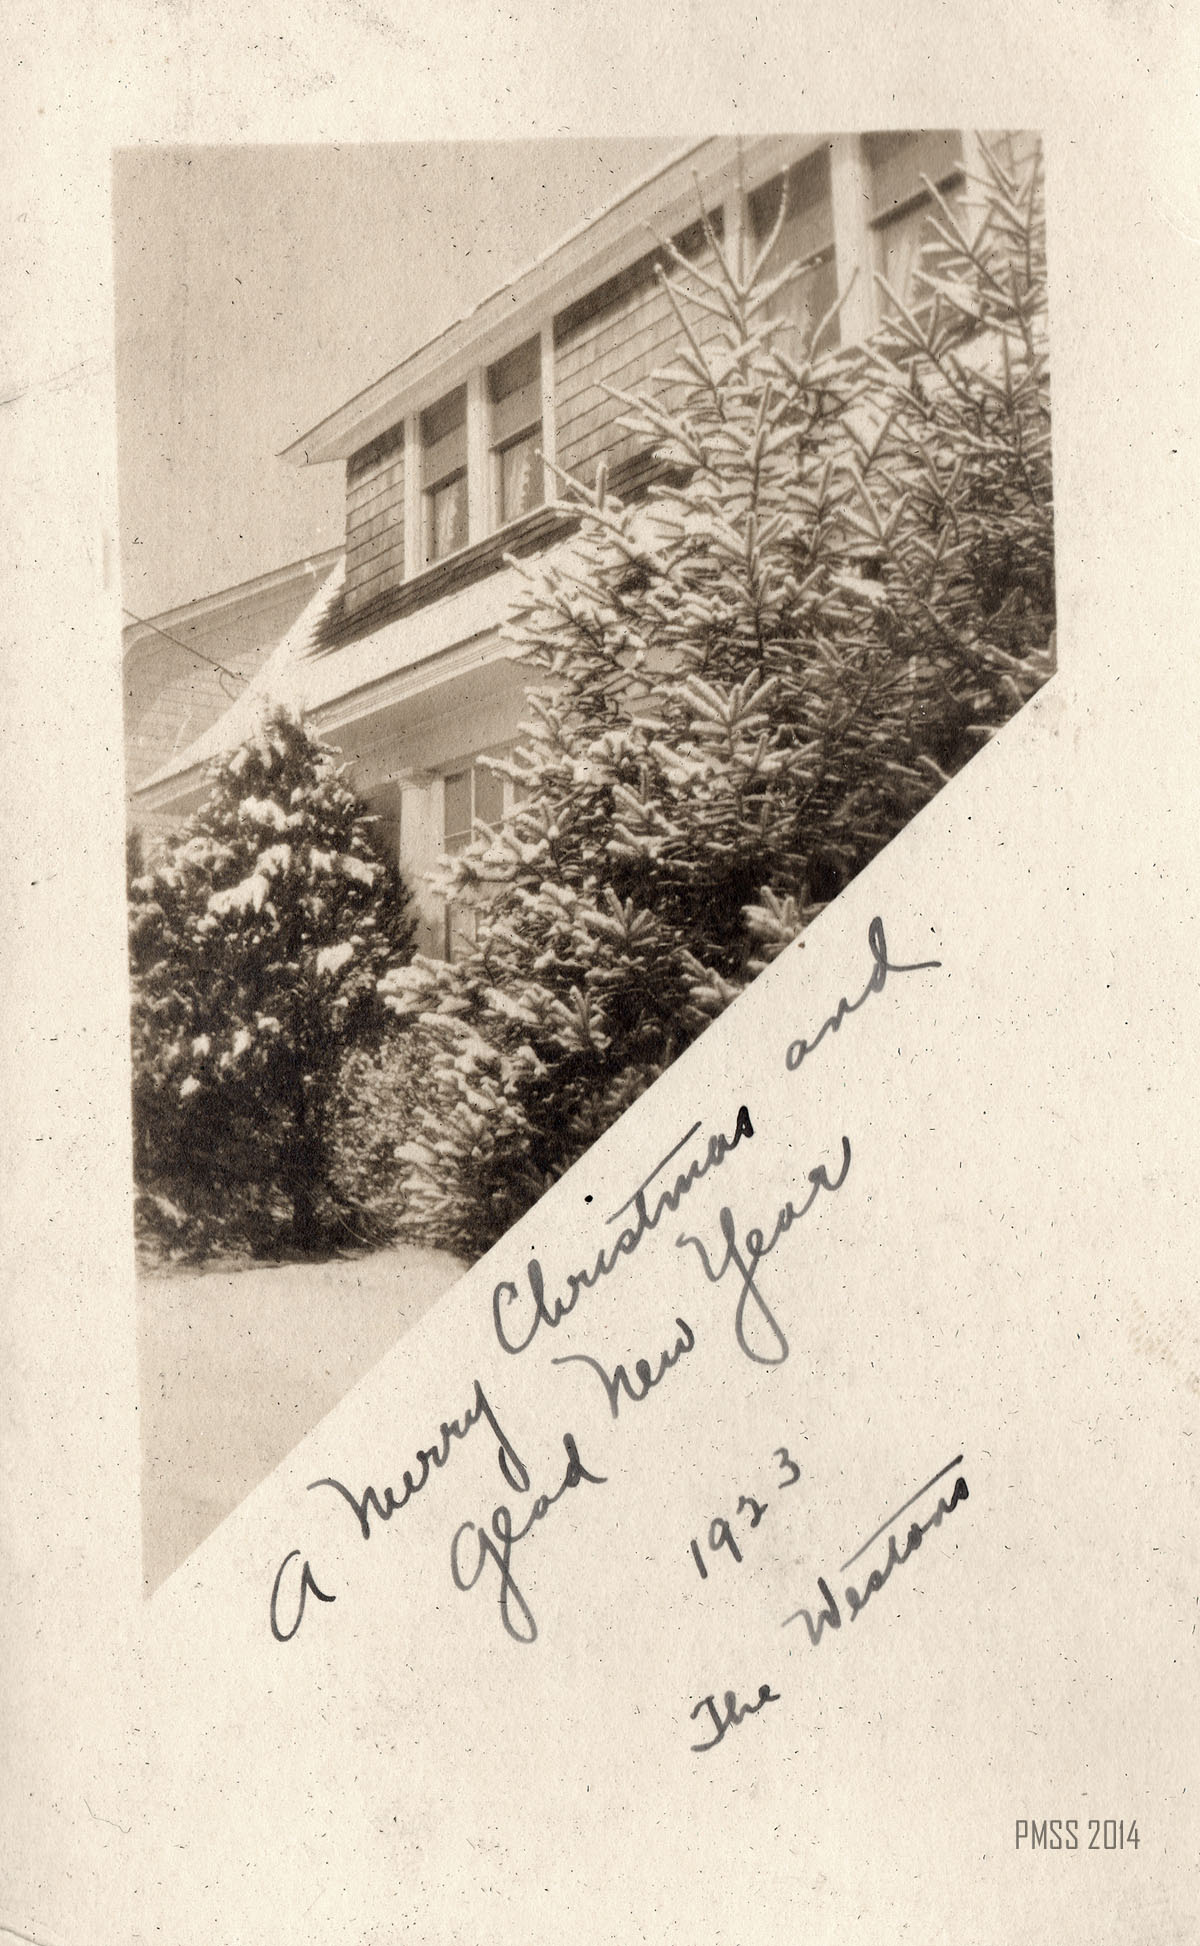 A Merry Christmas and
Glad New Year
1923
The Westons
PMSS 2014